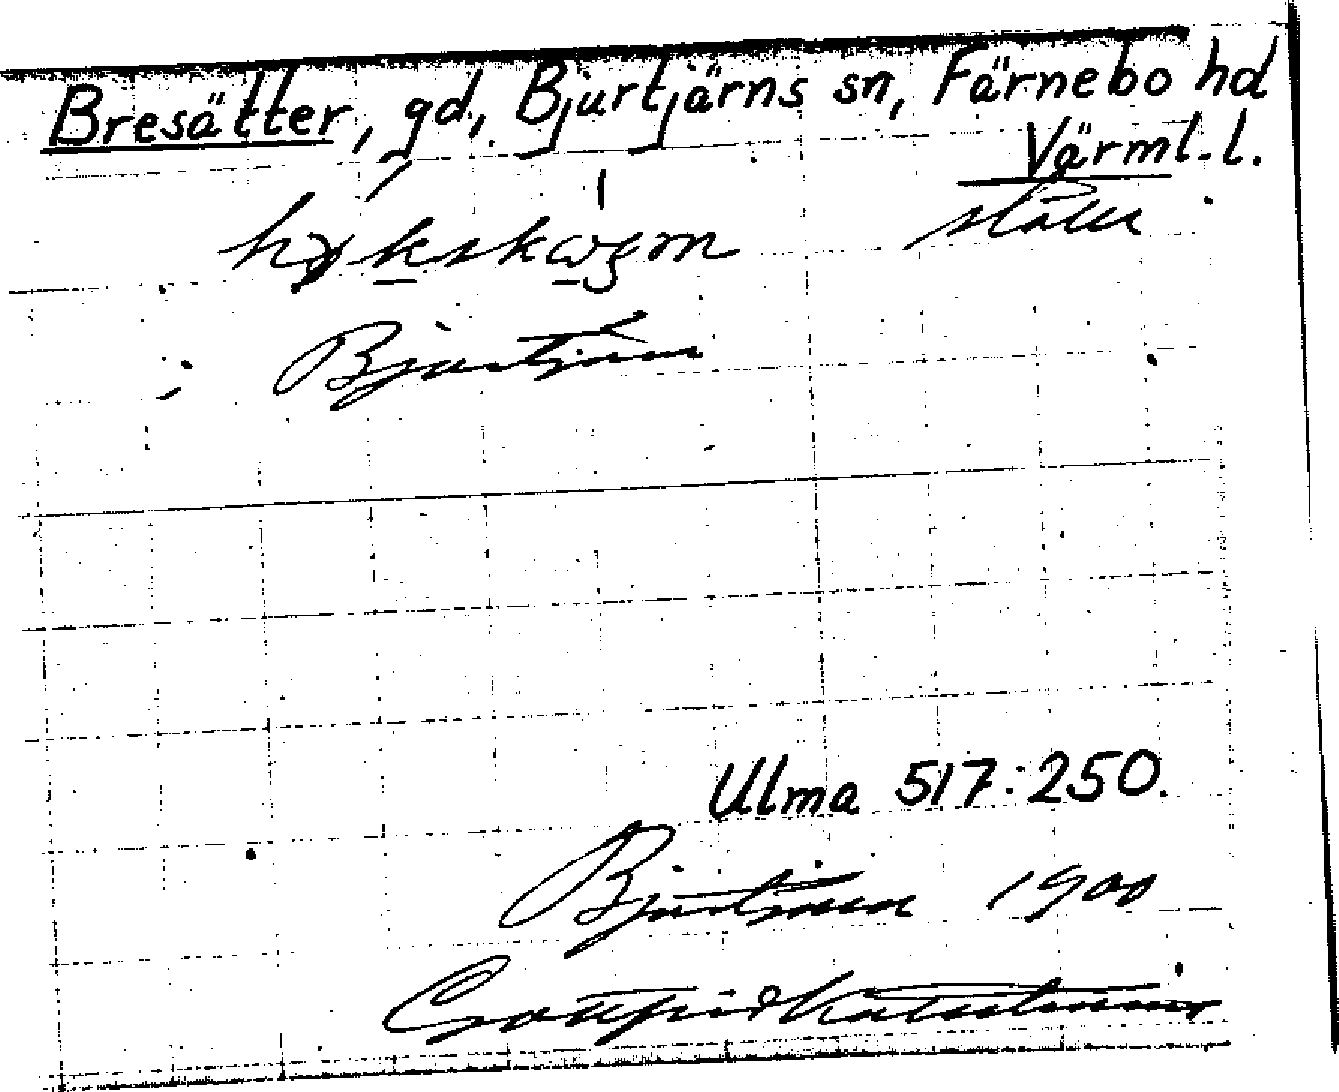 Bresätter, gd., Bjurtjärns sn, Färnebo hd
Värml. l.
ställe
i Bjurtjärn
Ulma 517:250.
Bjurtjärn 1900
Gottfrid Kallstenius